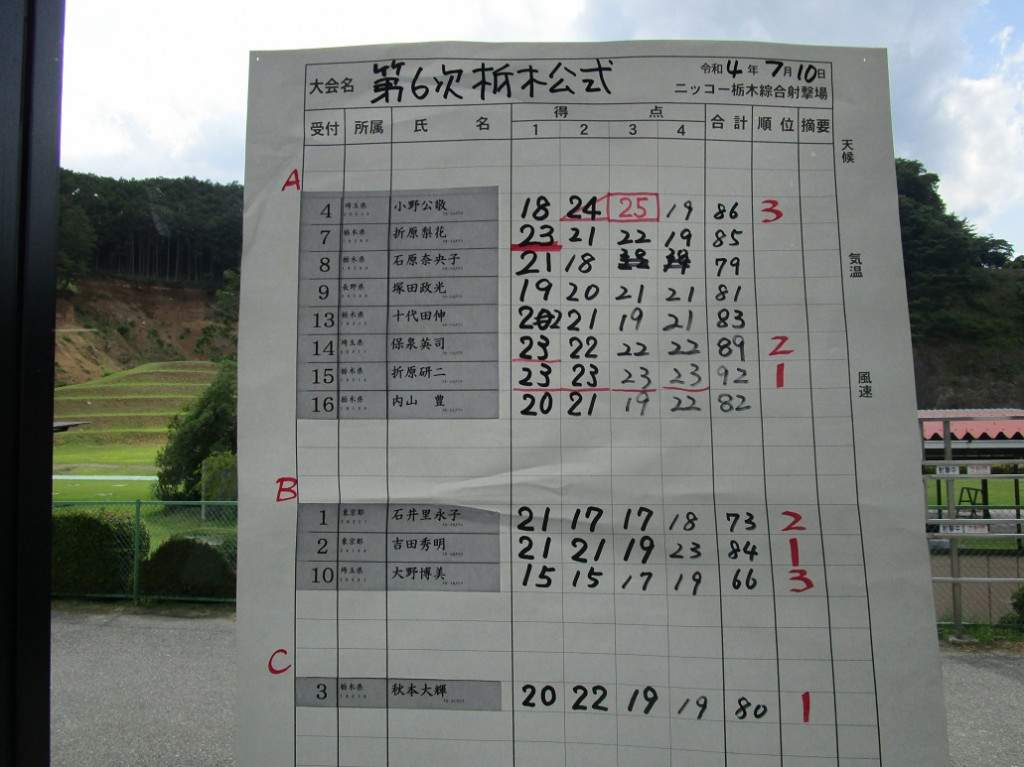 大会名 第6次栃木公式 令和4年7月10日
ニッコー栃木綜合射撃場
受付 所属 氏名 得点 合計 順位 摘要
1 2 3 4
天候
A
4 埼玉県 小野公敬 18 24 25 19 86 3
7 栃木県 折原梨花 23 21 22 19 85
8 栃木県 石原奈央子 21 18 79
気温
9 長野県 塚田政光 19 20 21 21 81
13 栃木県 十代田伸 22 21 19 21 83
14 埼玉県 保泉英司 23 22 22 22 89 2
15 栃木県 折原研二 23 23 23 23 92 1
風速
16 栃木県 内山 豊 20 21 19 22 82
B
1 東京都 石井里永子 21 17 17 18 73 2
2 東京都 吉田秀明 21 21 19 23 84 1
10 埼玉県 大野博美 15 15 17 19 66 3
C
3 栃木県 秋本大輝 20 22 19 19 80 1